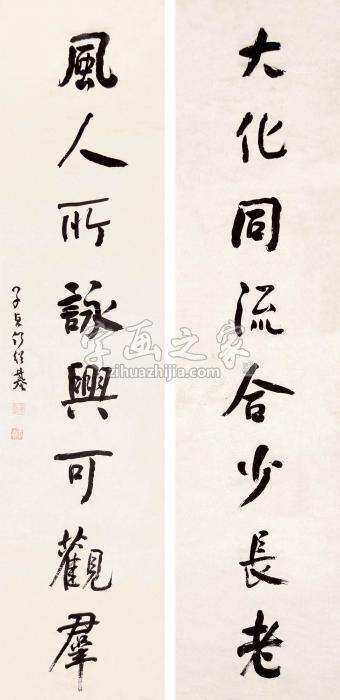 大化同流合少長老
風人所詠興可觀羣
子貞何紹基
字画之家
zihuazhijia.com